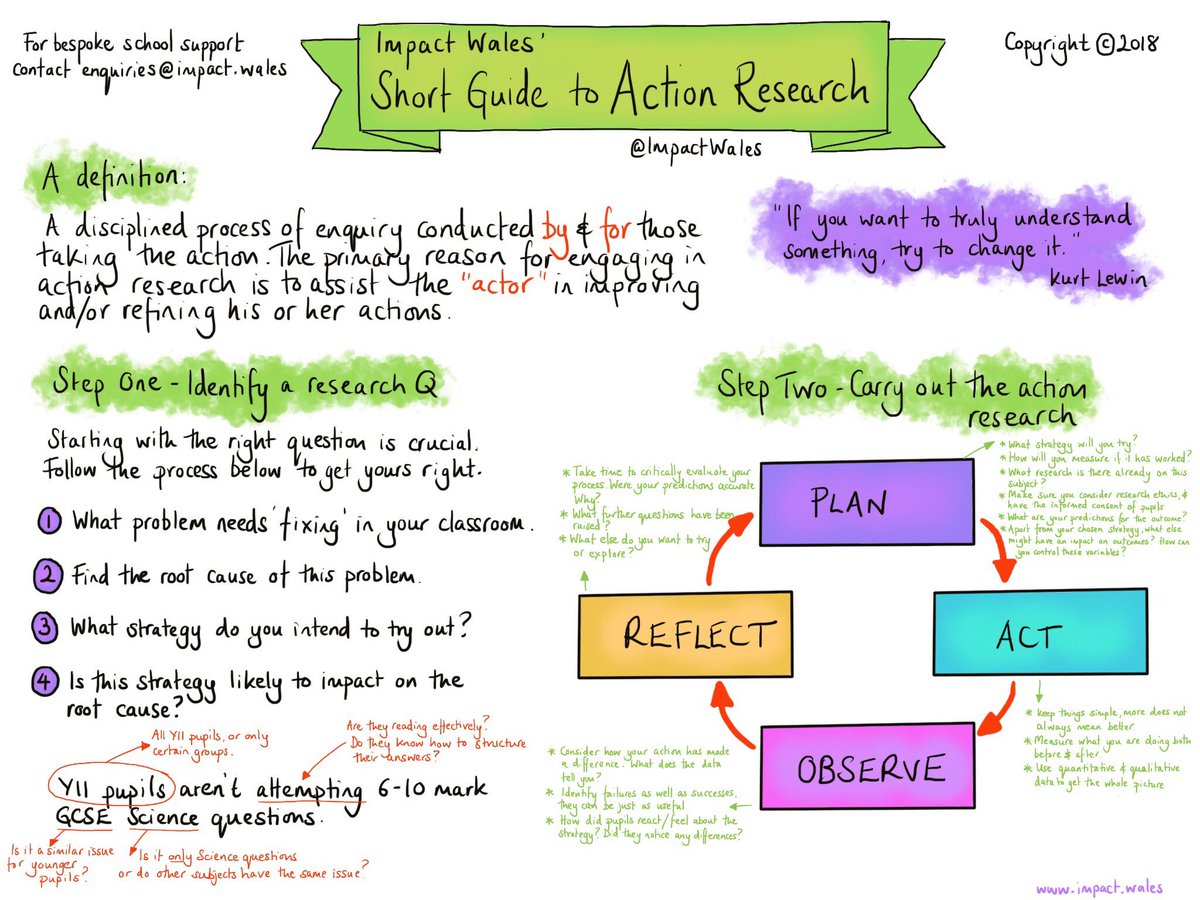 For bespoke school support
contact enquiries@impact.wales
Impact Wales'
Short Guide to Action Research
@ImpactWales
Copyright ©2018
A definition:
A disciplined process of enquiry conducted by & for those
taking the action. The primary reason for engaging in
action research is to assist the "actor" in improving
and/or refining his or her actions.
"If you want to truly understand
something, try to change it."
Kurt Lewin
Step One - Identify a research Q
Starting with the right question is crucial.
Follow the process below to get yours right.
1 What problem needs 'fixing' in your classroom.
2 Find the root cause of this problem.
3 What strategy do you intend to try out?
4 Is this strategy likely to impact on the
root cause?
All Y11 pupils, or only
certain groups.
Are they reading effectively?
Do they know how to structure
their answers?
Y11 pupils aren't attempting 6-10 mark
GCSE Science questions.
Is it a similar issue
for younger
pupils?
Is it only Science questions
or do other subjects have the same issue?
Step Two - Carry out the action
research
PLAN
* What strategy will you try?
* How will you measure if it has worked?
* What research is there already on this
subject?
* Make sure you consider research ethics, &
have the informed consent of pupils
* What are your predictions for the outcome?
* Apart from your chosen strategy, what else
might have an impact on outcomes? How can
you control these variables?
ACT
* Keep things simple, more does not
always mean better
* Measure what you are doing both
before & after
* Use quantitative & qualitative
data to get the whole picture
OBSERVE
* Consider how your action has made
a difference. What does the data
tell you?
* Identify failures as well as successes,
they can be just as useful
* How did pupils react/feel about the
strategy? Did they notice any differences?
REFLECT
* Take time to critically evaluate your
process. Were your predictions accurate
Why?
* What further questions have been
raised?
* What else do you want to try
or explore?
www.impact.wales